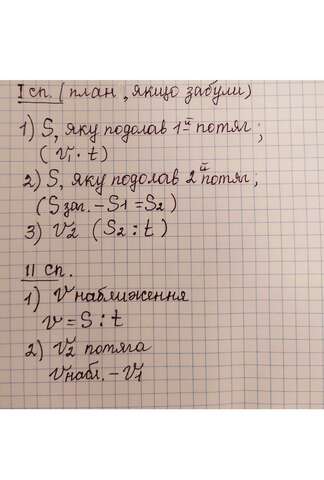 I сп. (план, якщо забули)
1) S, яку подолав 1й потяг;
(V₁ · t)
2) S, яку подолав 2й потяг;
(S заг. – S1 = S₂)
3) V₂ (S₂ : t)
II сп.
1) V наближення
V = S : t
2) V₂ потяга
Vнабл. – V₁